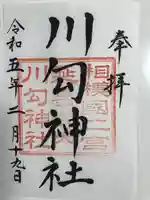 奉拝
相模國二宮
川勾神社
川勾神社
令和五年二月十九日